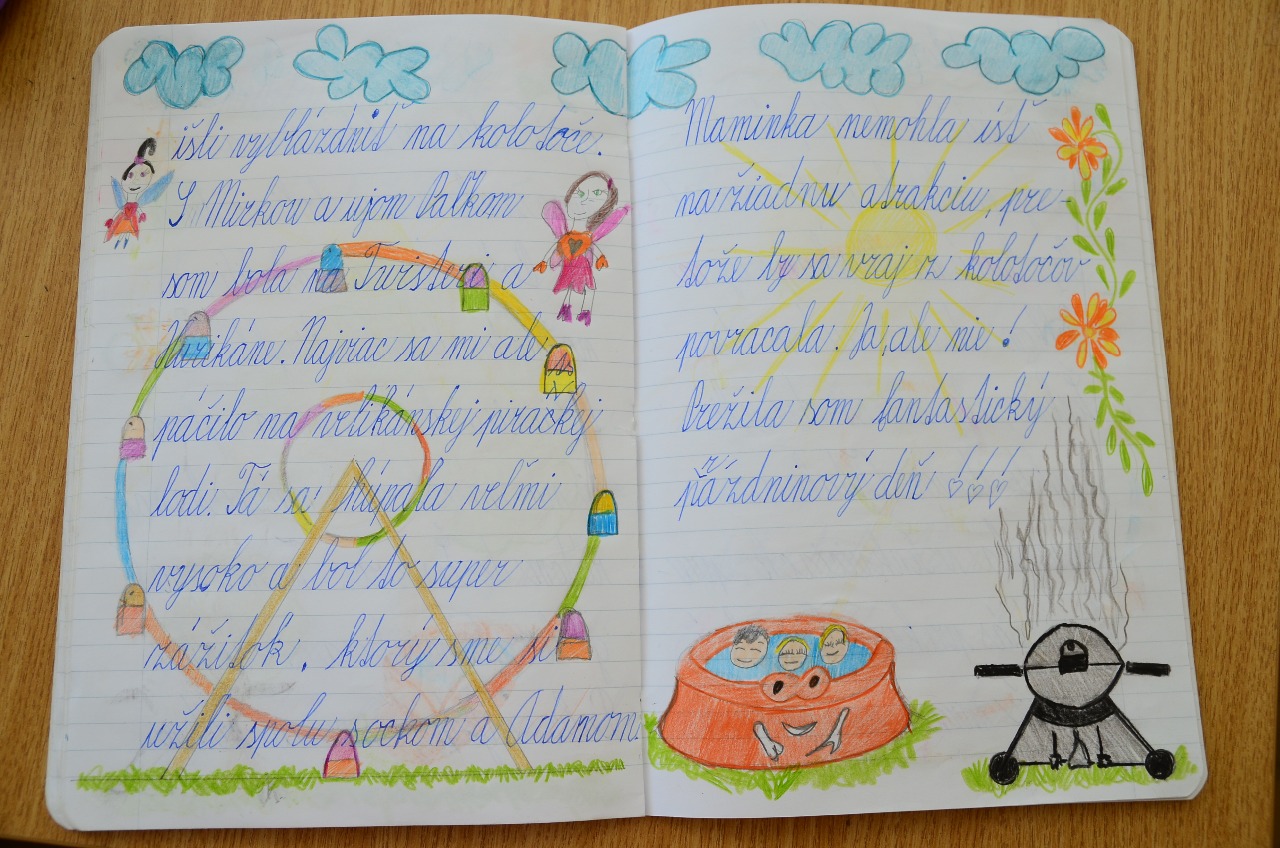 išli vyblázdniť na kolotoče.
S Mirkou a ujom Paľkom
som bola na Twisteri a
Hurikáne. Najviac sa mi ale
páčilo na velikánskej pirátskej
lodi. Tá sa húpala veľmi
vysoko a bol to super
zážitok, ktorý sme si
užili spolu s ockom a Adamom.
Maminka nemohla ísť
na žiadnu atrakciu, pre-
tože by sa vraj z kolotočov
povracala. Ja, ale nie!
Prežila som fantastický
prázdninový deň!!!